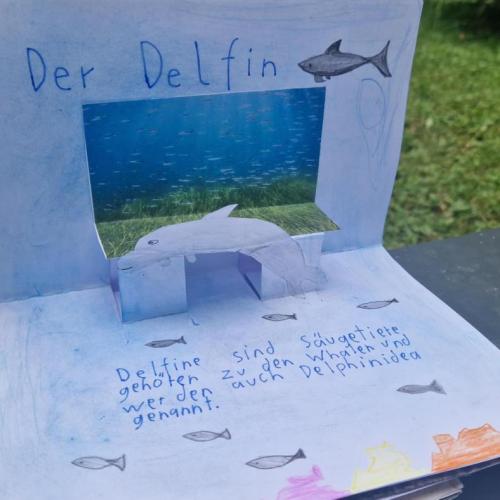 Der Delfin
Delfine sind Säugetiere,
gehören zu den Whalen und
werden auch Delphinidea
genannt.